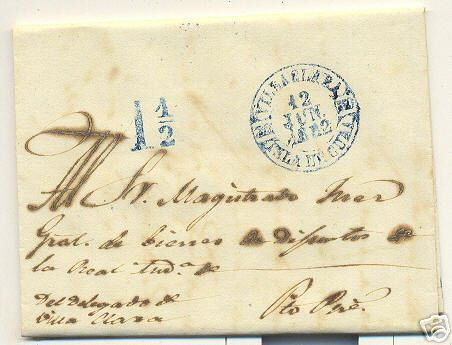 1 1/2
VILLA CLARA
12
JUN.
1842
ISLA DE CUBA
Al Sr. Magistrado Juez
Gral. de bienes de difuntos de
la Real Aud.a de
Del delegado de
Villa Clara
Pto Pre.